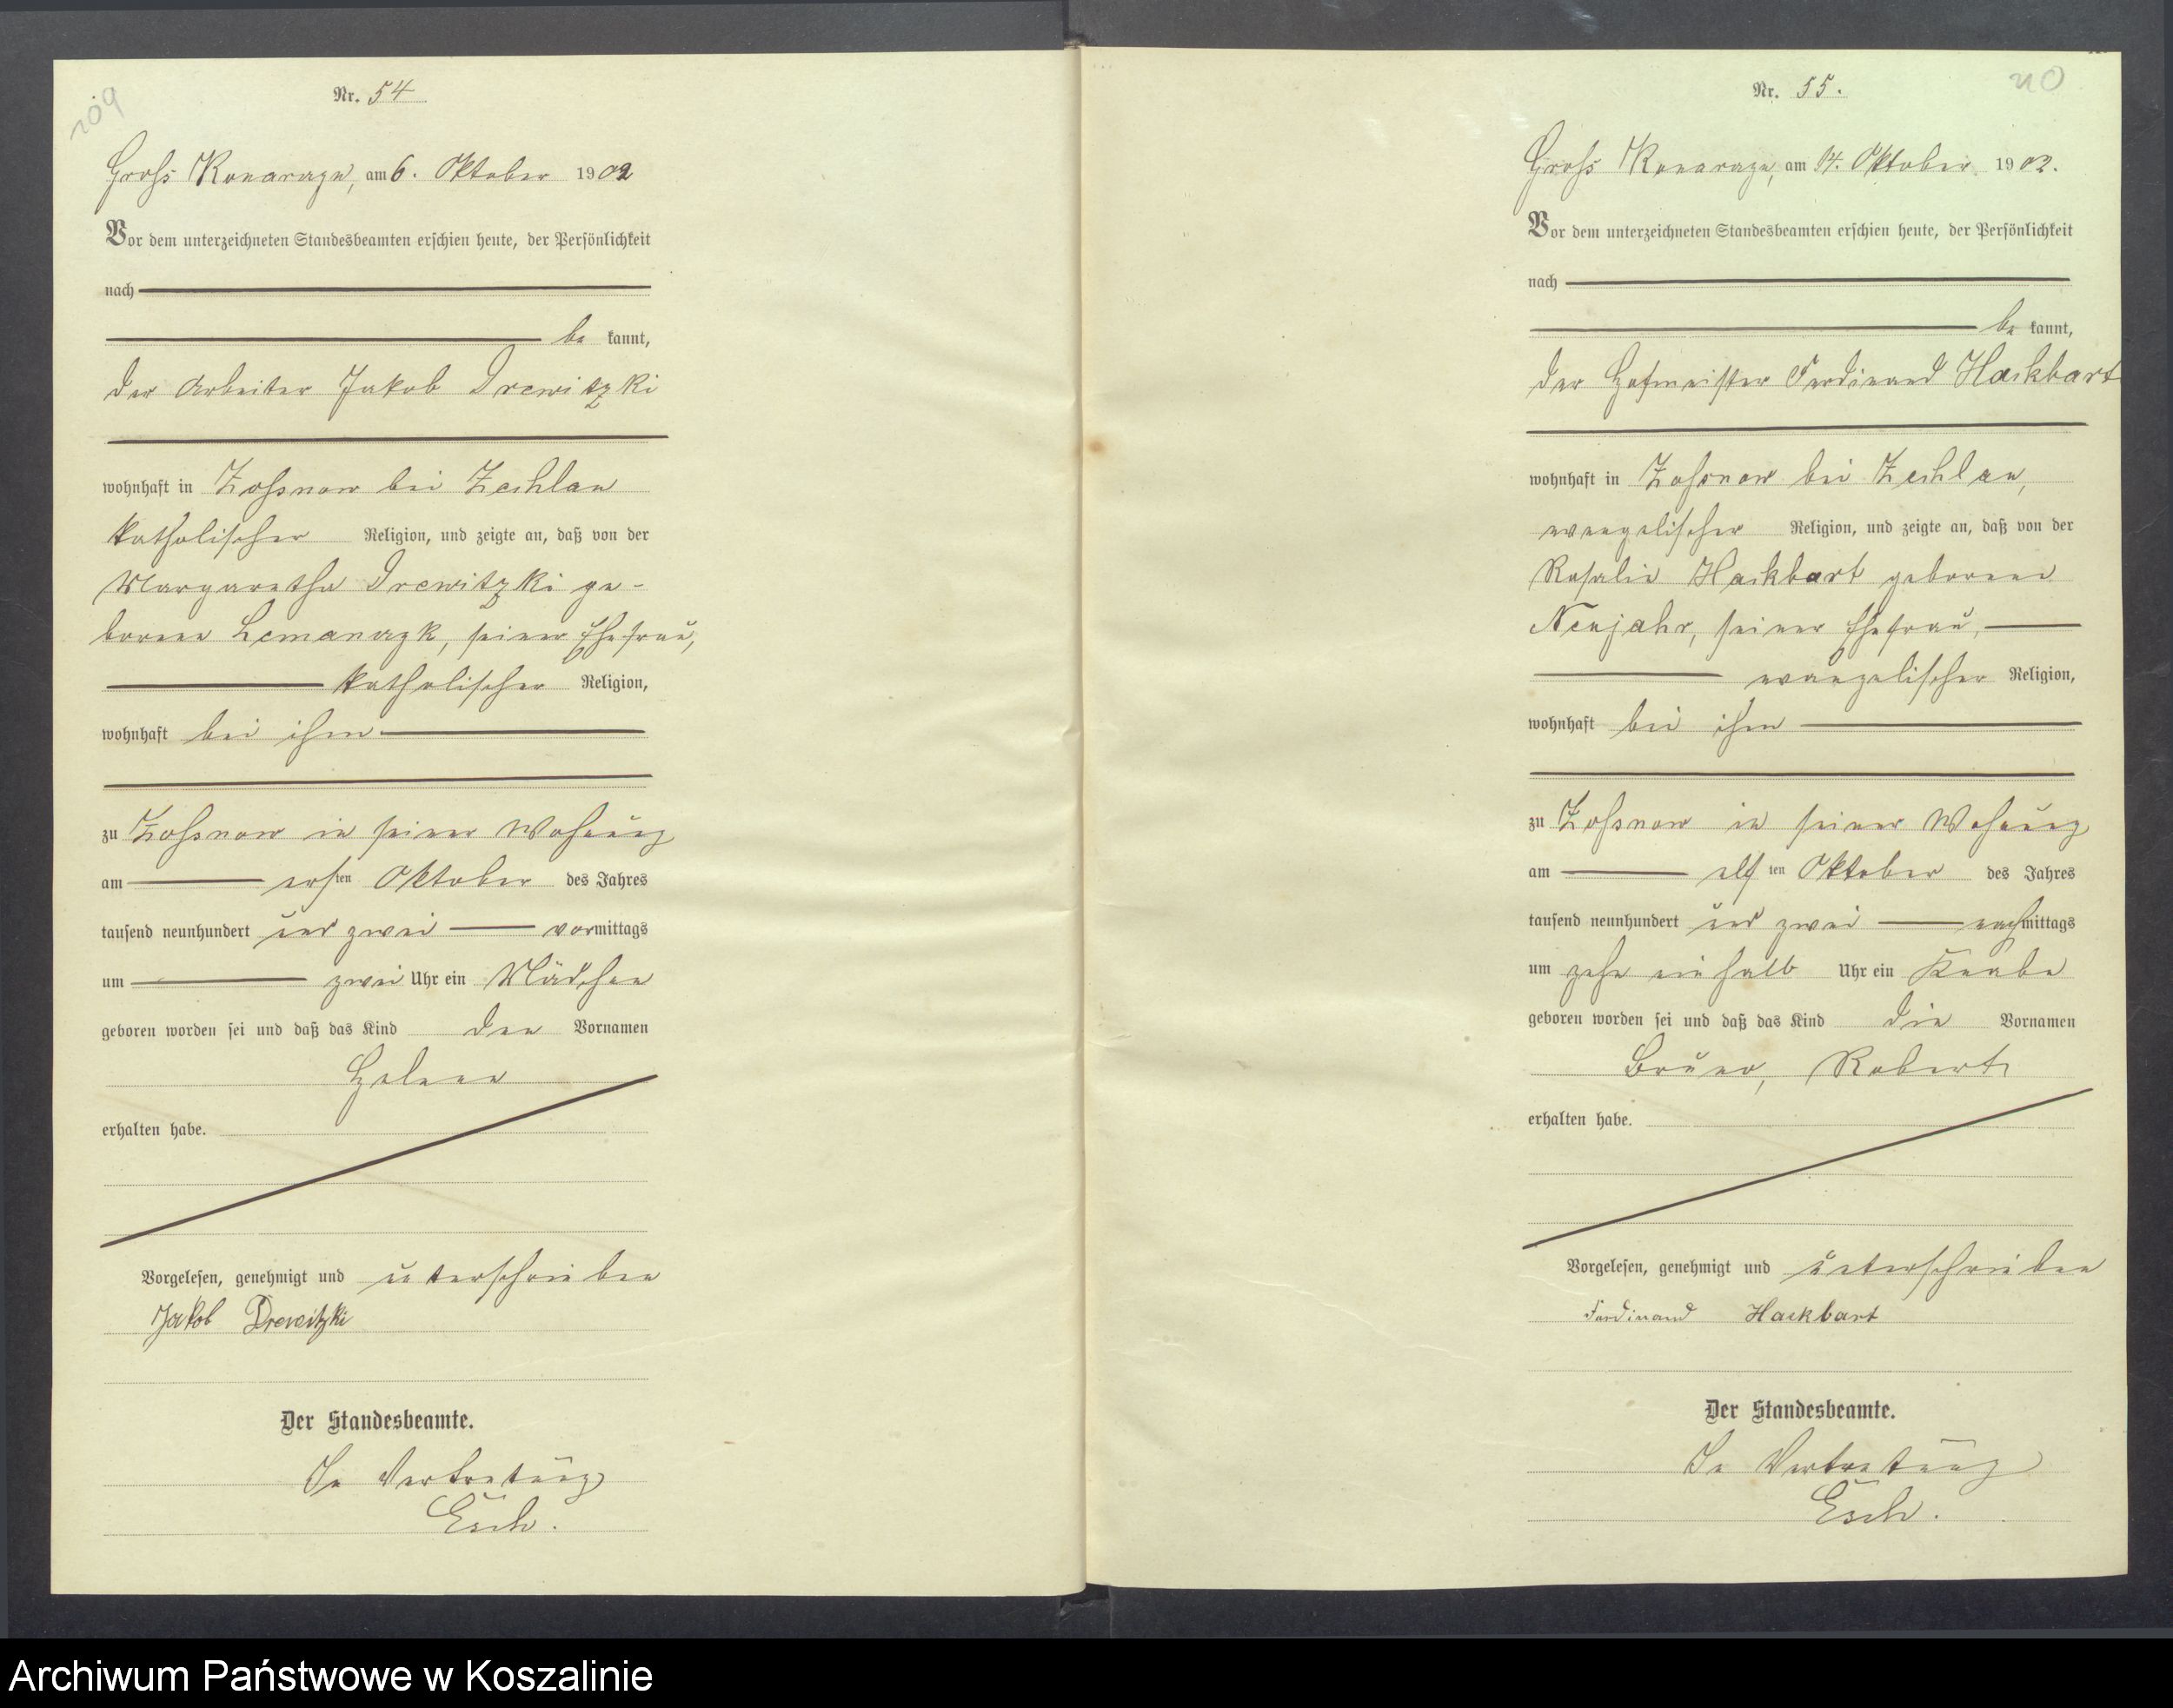 109
Nr. 54
Gross Konarczyn, am 6. Oktober 1902
Vor dem unterzeichneten Standesbeamten erschien heute, der Persönlichkeit
nach
be kannt,
der Arbeiter Jakob Drewitzki
wohnhaft in Zossnow bei Zechlau
katholischer Religion, und zeigte an, daß von der
Margaretha Drewitzki ge-
borene Lemanczyk, seiner Ehefrau,
katholischer Religion,
wohnhaft bei ihm
zu Zossnow in seiner Wohnung
am ersten Oktober des Jahres
tausend neunhundert und zwei vormittags
um zwei Uhr ein Mädchen
geboren worden sei und daß das Kind den Vornamen
Helene
erhalten habe.
Vorgelesen, genehmigt und unterschrieben
Jakob Drewitzki
Der Standesbeamte.
In Vertretung
Esch.
110
Nr. 55.
Gross Konarczyn, am 14. Oktober 1902.
Vor dem unterzeichneten Standesbeamten erschien heute, der Persönlichkeit
nach
be kannt,
der Hofmeister Ferdinand Hackbart
wohnhaft in Zossnow bei Zechlau,
evangelischer Religion, und zeigte an, daß von der
Rosalie Hackbart geborene
Neujahr, seiner Ehefrau,
evangelischer Religion,
wohnhaft bei ihm
zu Zossnow in seiner Wohnung
am elften Oktober des Jahres
tausend neunhundert und zwei nachmittags
um zehn ein halb Uhr ein Knabe
geboren worden sei und daß das Kind die Vornamen
Bruno, Robert
erhalten habe.
Vorgelesen, genehmigt und unterschrieben
Ferdinand Hackbart
Der Standesbeamte.
In Vertretung
Esch.
Archiwum Państwowe w Koszalinie